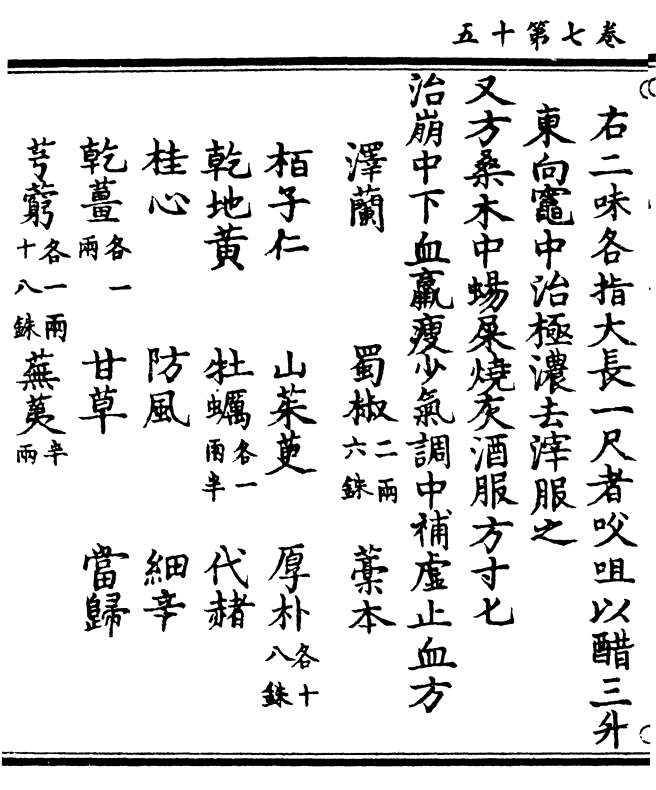 卷七第十五
右二味各指大長一尺者㕮咀以醋三升
東向竈中治極濃去滓服之
又方桑木中蝎屎燒灰酒服方寸匕
治崩中下血羸瘦少氣調中補虛止血方
澤蘭 蜀椒二兩六銖 藁本
栢子仁 山茱萸 厚朴各十八銖
乾地黃 牡蠣各一兩半 代赭
桂心 防風 細辛
乾薑各一兩 甘草 當歸
芎藭各一兩十八銖 蕪荑半兩